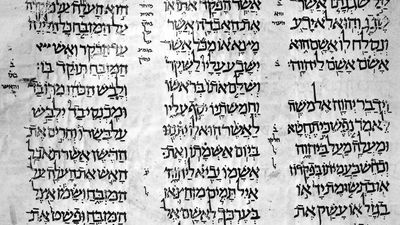 על שגגתו אשר
שגג והוא לא ידע
ונסלח לו אשם הוא
אשם אשם ליהוה
וידבר יהוה אל משה
לאמר נפש כי תחטא
ומעלה מעל ביהוה
וכחש בעמיתו בפקדון
או בתשומת יד או
בגזל או עשק את
אשר הפקד אתו או
את האבדה אשר
מצא או מכל אשר
ישבע עליו לשקר
ושלם אתו בראשו
וחמשתיו יסף עליו
לאשר הוא לו יתננו
ביום אשמתו ואת
אשמו יביא ליהוה
איל תמים מן הצאן
בערכך לאשם אל
הוא העלה על מוקדה
על המזבח כל הלילה
עד הבקר ואש
המזבח תוקד בו
ולבש הכהן מדו בד
ומכנסי בד ילבש
על בשרו והרים את
הדשן אשר תאכל
האש את העלה על
המזבח ושמו אצל
המזבח ופשט את